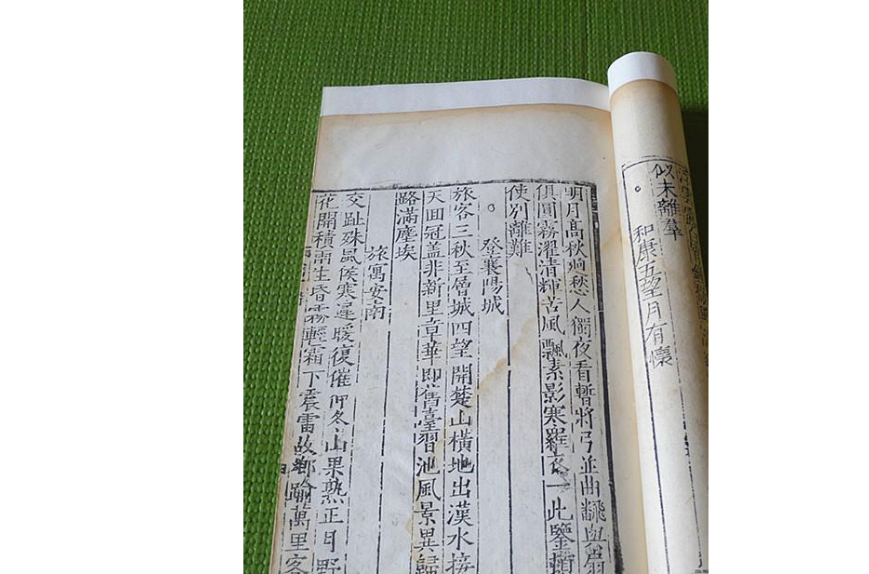 似未離羣
和康五望月有懷
明月高秋迥愁人獨夜看暫將弓並曲翻與扇
俱圓霧濯清輝苦風飄素影寒羅衣一此鑒
使別離難
登襄陽城
旅客三秋至層城四望開楚山橫地出漢水接
天回冠蓋非新里章華即舊臺習池風景異歸
路滿塵埃
旅寓安南
交趾殊風候寒遲暖復催仲冬山果熟正月野
花開積雨生昏霧輕霜下震雷故鄉踰萬里客